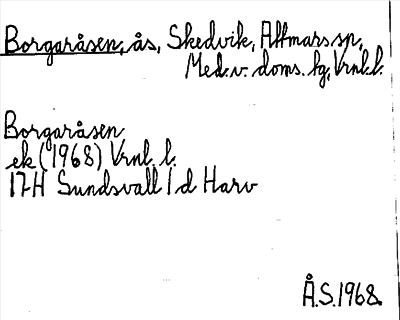 Borgaråsen, ås, Skedvik, Attmars sn,
Med.v. doms. hg, Vrnl. l.
Borgaråsen
ek (1968) Vrnl. l.
17H Sundsvall 1 d Harv
Å.S. 1968.